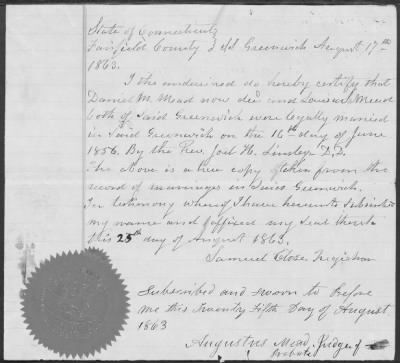 State of Connecticut
Fairfield County } ss Greenwich August 17th
1863.
I the undersined do hereby certify that
Daniel M. Mead now died and Louisa S. Mead
both of Said Greenwich were legally married
in Said Greenwich on the 16th day of June
1856. By the Rev. Joel H. Linsley D.D.
The above is a true copy taken from the
record of marriages in Said Greenwich.
In testimony where of I have hereunto subscribed
my name and affixed my Seal thereto
this 25th day of August 1863.
Samuel Close, Register
Subscribed and sworn to Before
me this Twenty Fifth Day of August
1863
Augustus Mead, Judge of
Probate